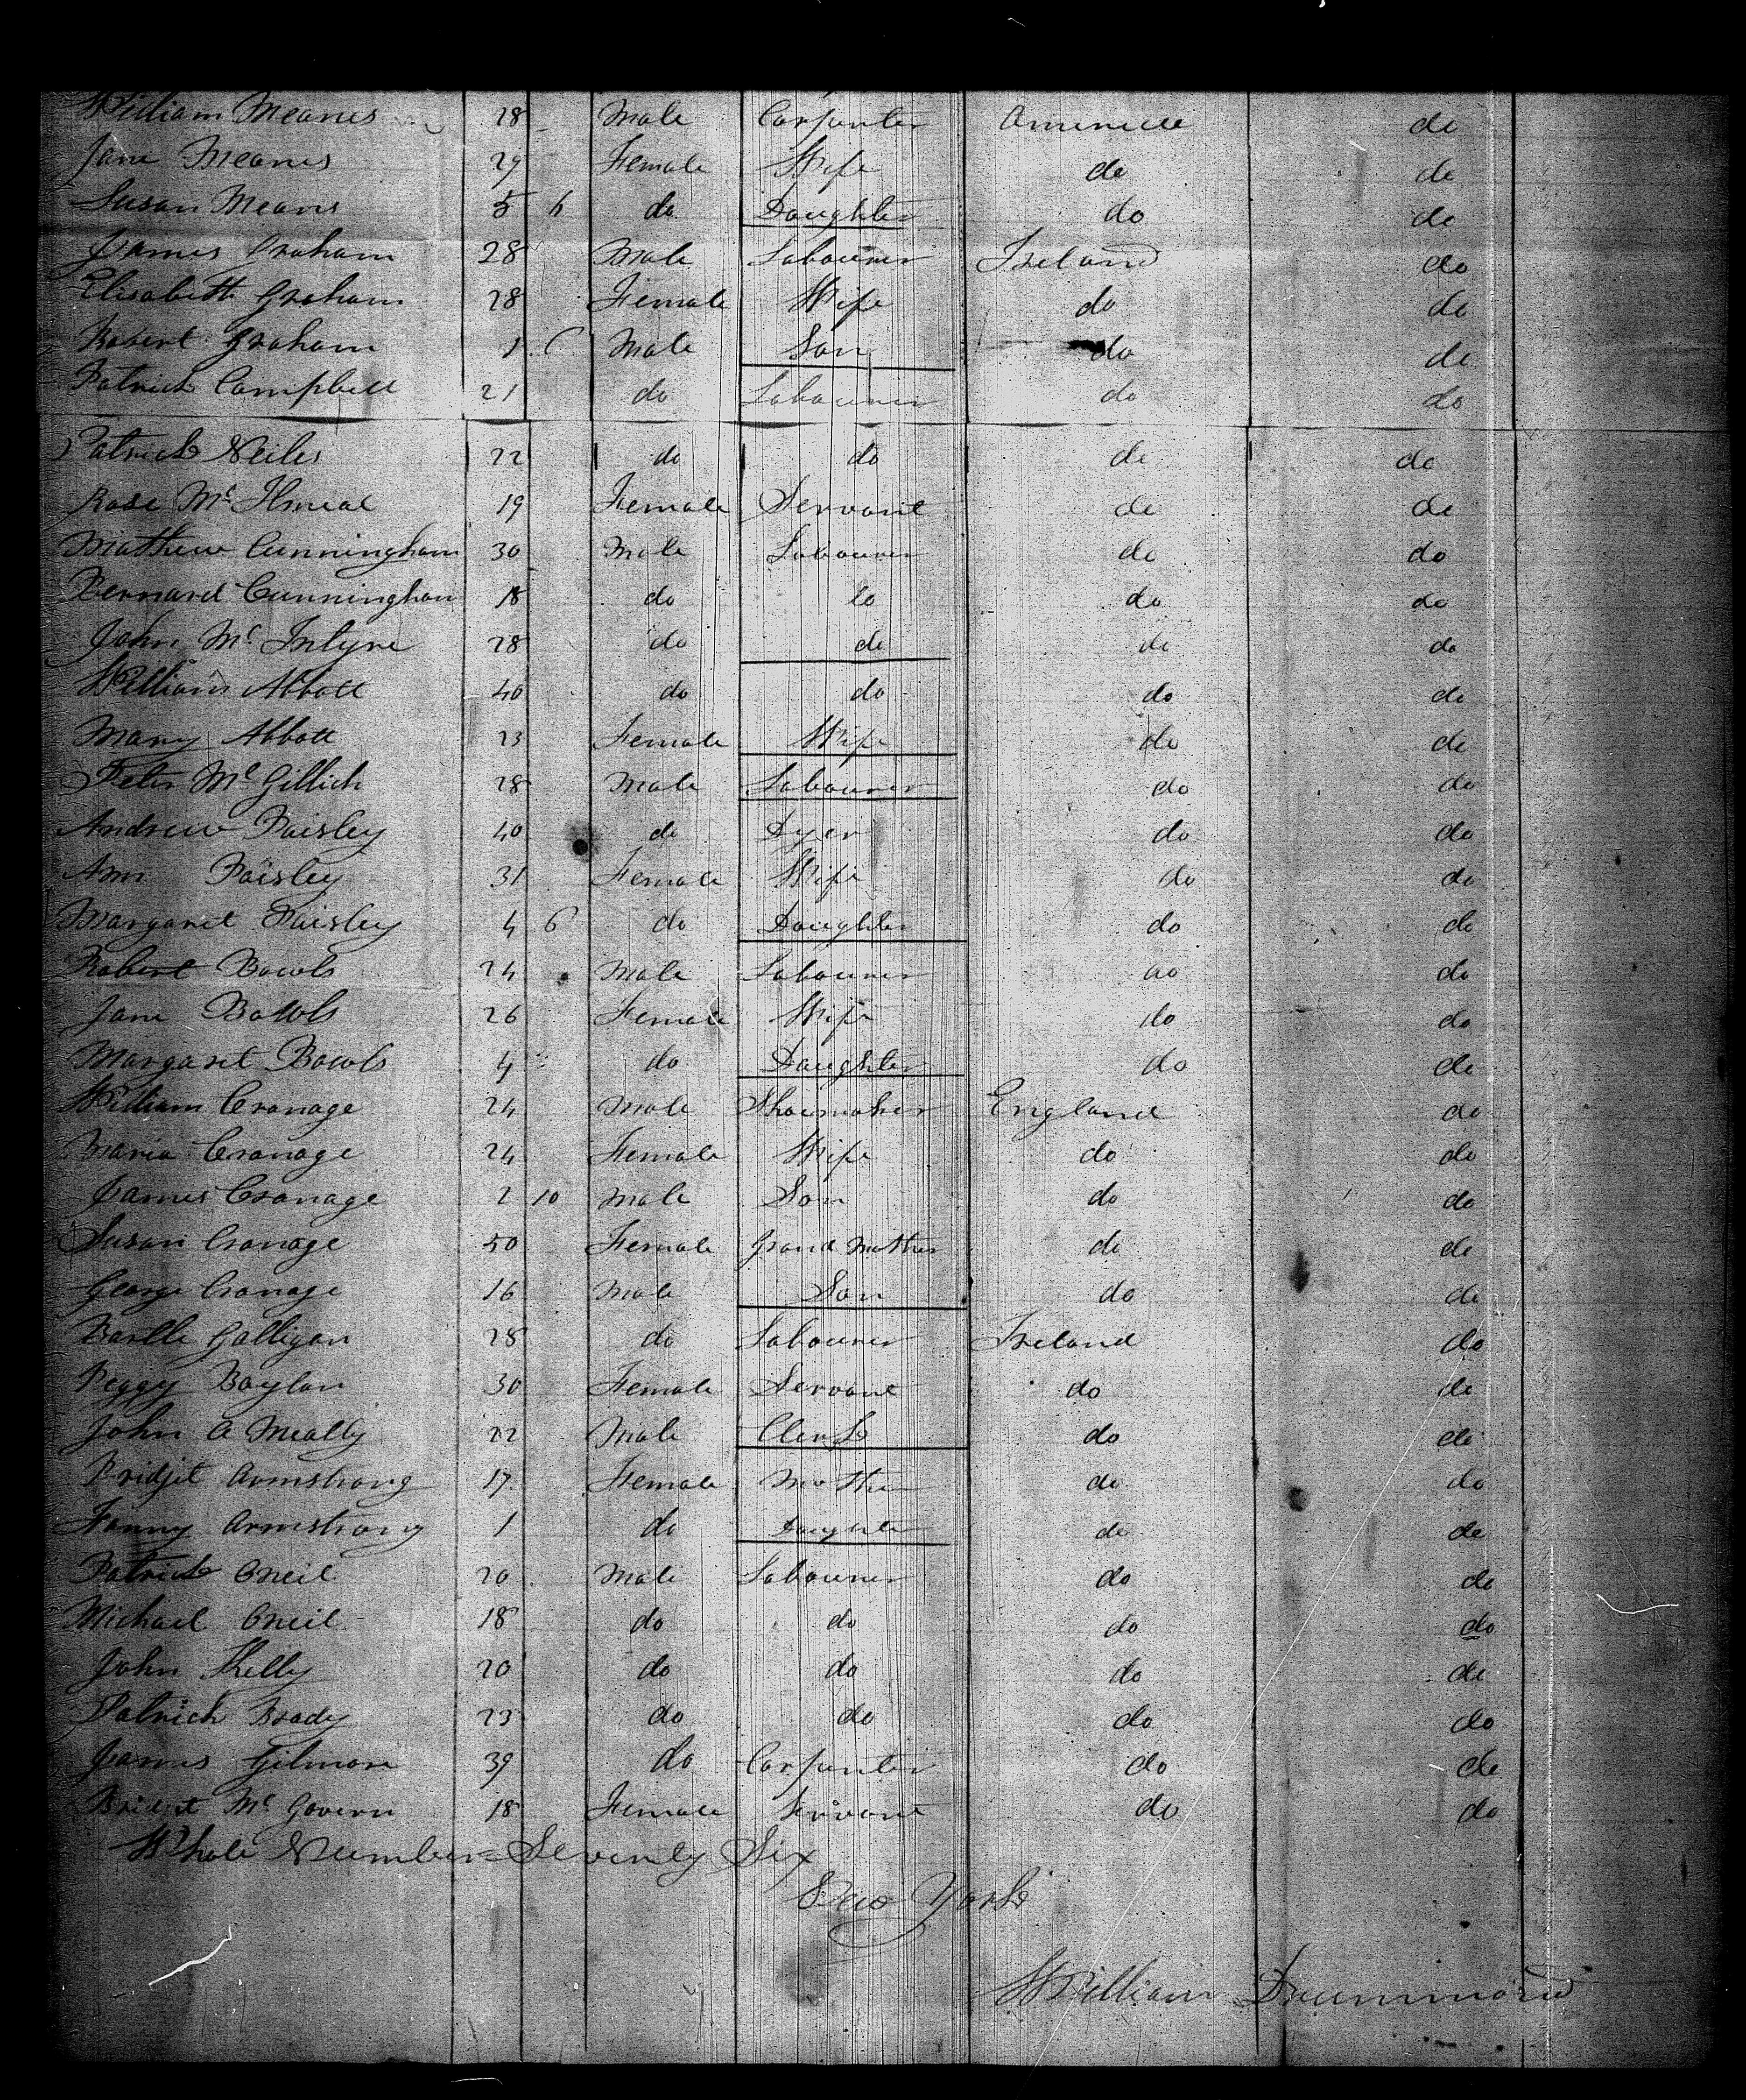 William Meanes 28 Male Carpenter Americe do
Jane Meanes 29 Female Wife do do
Susan Means 5 6 do Daughter do do
James Graham 28 Male Labourer Ireland do
Elisabeth Graham 28 Female Wife do do
Robert Graham 1 6 Male Son do do
Patrick Campbell 21 do Labourer do do
Patrick Neiles 22 do do do do
Rose Mc 19 Female Servant do do
Mathew Cunningham 30 Male Labourer do do
Bernard Cunningham 18 do do do do
John Mc Intyre 28 do do do do
William Abbott 40 do do do do
Mary Abbott 23 Female Wife do do
Peter Mc Gillich 28 Male Labourer do do
Andrew Paisley 40 do Dyer do do
Ann Paisley 31 Female Wife do do
Margaret Paisley 4 6 do Daughter do do
Robert Bowls 24 Male Labourer do do
Jane Bowls 26 Female Wife do do
Margaret Bowls 4 do Daughter do do
William Cranage 24 Male Shoemaker England do
Maria Cranage 24 Female Wife do do
James Cranage 2 10 Male Son do do
Susan Cranage 50 Female Grand Mother do do
George Cranage 16 Male Son do do
Bartle Galligan 28 do Labourer Ireland do
Peggy Boylan 30 Female Servant do do
John O Meally 22 Male Clerk do do
Bridjit Armstrong 17 Female Mother do do
Fanny Armstrong 1 do Daughter do do
Patrick Oneil 20 Male Labourer do do
Michael Oneil 18 do do do do
John Kelly 20 do do do do
Patrick Brady 23 do do do do
James Gilmore 39 do Carpenter do do
Bridget Mc Govern 18 Female Servant do do
Whole Number = Seventy Six
New York
William Drummond